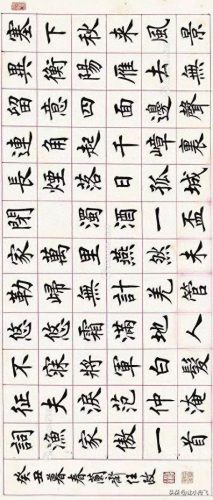 塞下秋来風景
異衡陽雁去無
留意四面邊聲
連角起千嶂裏
長煙落日孤城
閉 濁酒一盃
家萬里燕然未
勒歸無計羌管
悠悠霜滿地人
不寐將軍白髮
征夫淚范仲淹
詞漁家傲一首
癸丑暮春